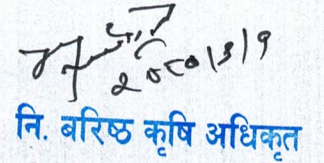 २०८०।३।९
नि. बरिष्ठ कृषि अधिकृत